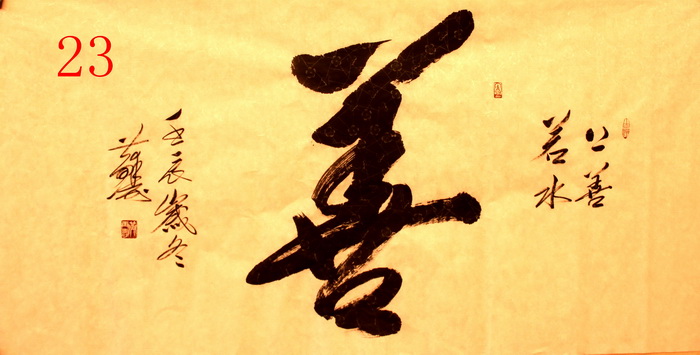 23
上善
若水
善
壬辰歲冬